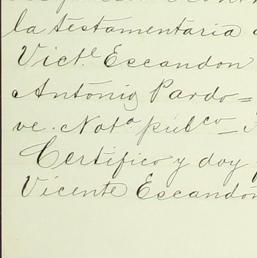 la testamentaria
Victe Escandon
Antonio Pardo=
ve. Nota públco_
Certifico y doy
Vicente Escandon